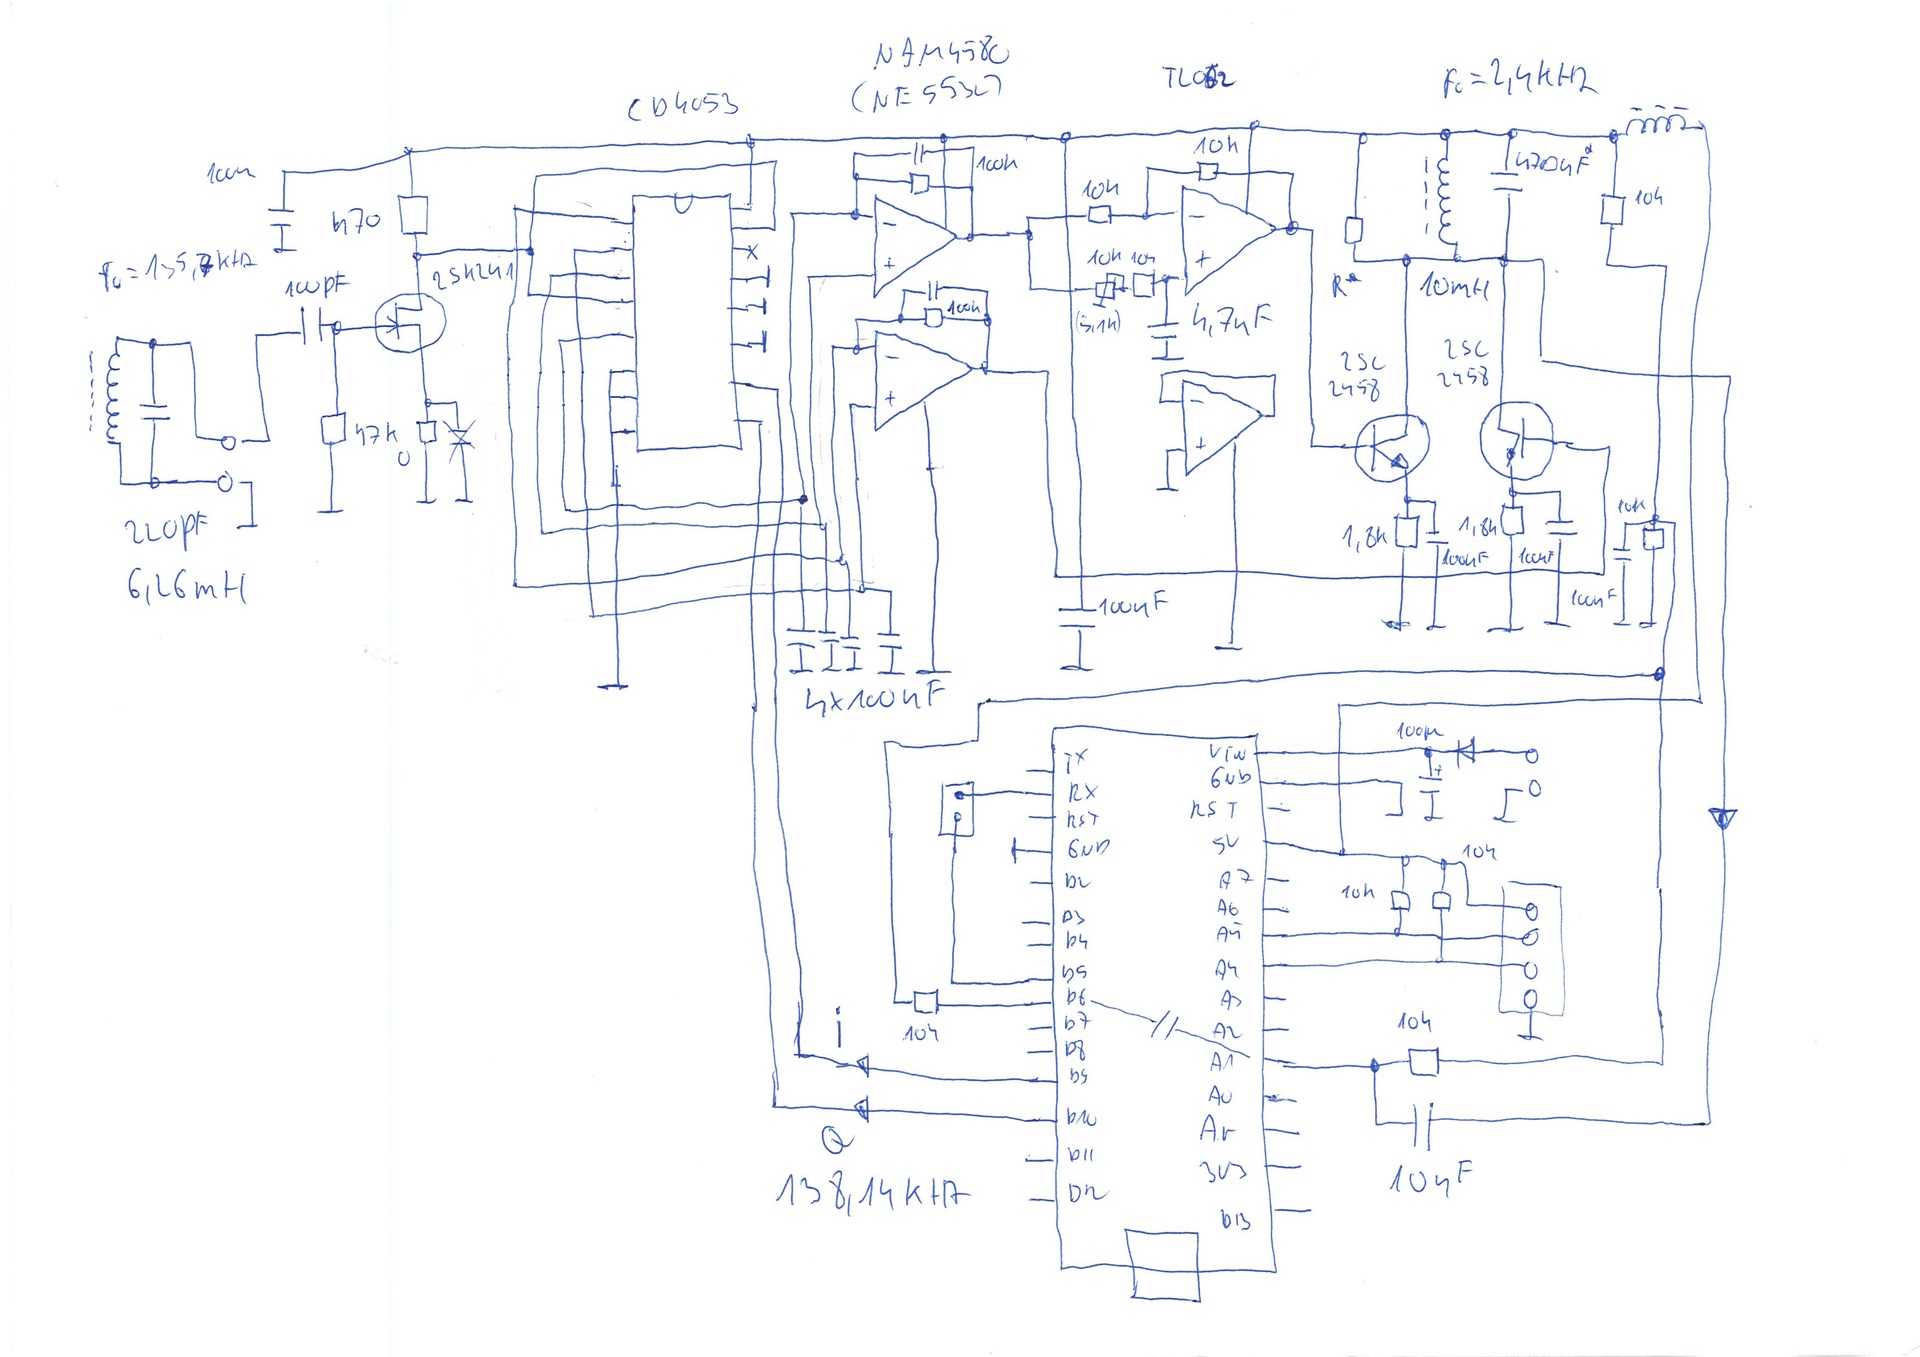 CD4053
NJM4580
(NE5532)
TL062
F₀ = 2,4kHz
100n
470
F₀ = 135,7kHz
100pF
2SK241
47k
0
220pF
6,26mH
x
100k
100k
10k
10k
10k
10k
(5,1k)
4,7nF
R*
10mH
4700nF*
10k
2SC
2458
2SC
2458
1,8k
100nF
1,8k
100nF
10k
100nF
100nF
4x100nF
TX
RX
RST
GND
D2
D3
D4
D5
D6
D7
D8
D9
D10
D11
D12
VIN
GND
RST
5V
A7
A6
A5
A4
A3
A2
A1
A0
Ar
3V3
D13
100µ
+
10k
10k
10k
10k
10nF
i
Q
138,14kHz